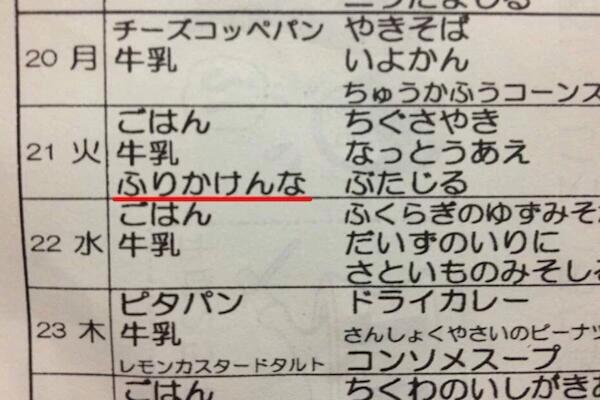 20 月
チーズコッペパン
牛乳
やきそば
いよかん
ちゅうかふうコーンス
21 火
ごはん
牛乳
ふりかけんな
ちぐさやき
なっとうあえ
ぶたじる
22 水
ごはん
牛乳
ふくらぎのゆずみそ
だいずのいりに
さといものみそし
23 木
ピタパン
牛乳
レモンカスタードタルト
ドライカレー
さんしょくやさいのピーナツ
コンソメスープ
ごはん
ちくわのいしがき